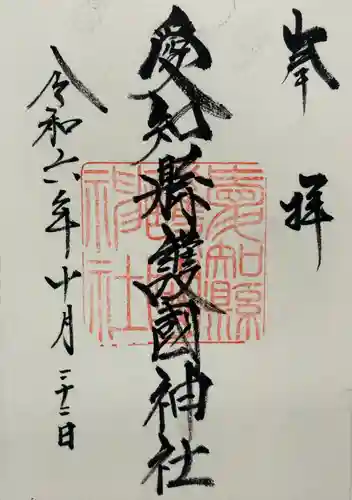 奉拝
愛知縣護國神社
令和六年十月二十二日
愛知縣
護國
神社